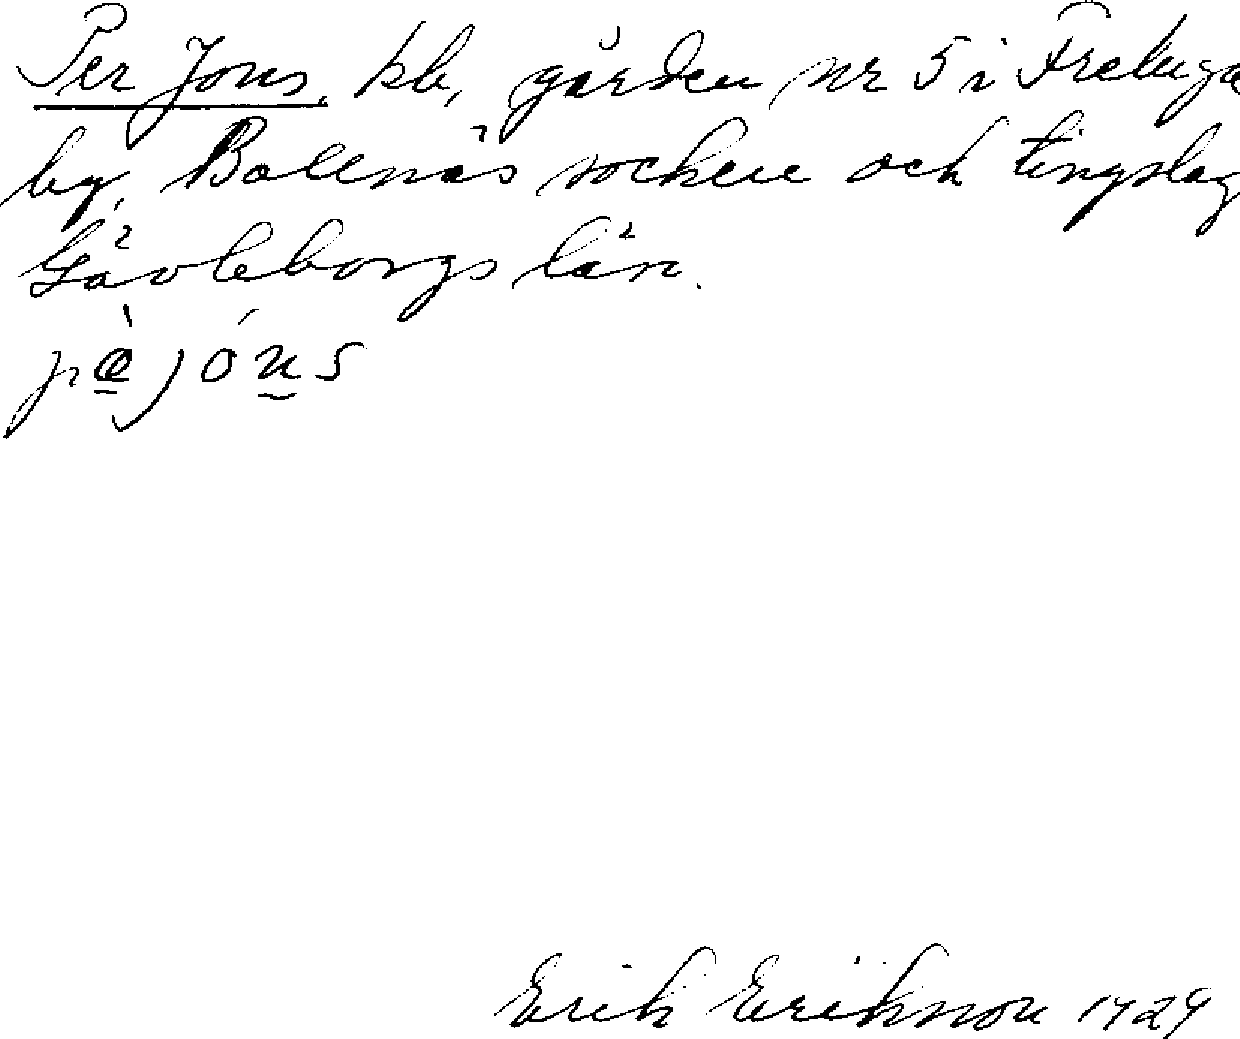 Per Jons, kb, gården nr 5 i Freluga
by, Bollnäs socken och tingslag
Gävleborgs län.
Erik Erikson